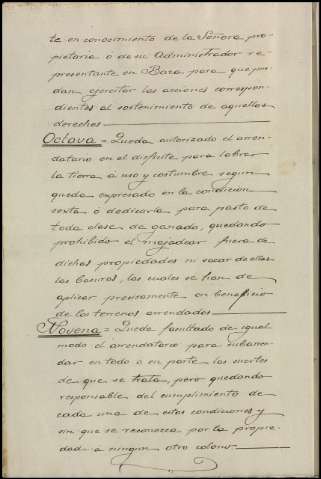 te en conocimiento de la Señora pro-
pietaria ó de su Administrador re-
presentante en Baza para que pue-
dan ejercitar las acciones correspon-
dientes al sostenimiento de aquellos
derechos
Octava = Queda autorizado el arren-
datario en el disfrute para labrar
la tierra a uso y costumbre segun
queda expresado en la condicion
sexta ó dedicarla para pasto de
toda clase de ganado, quedando
prohibido el majadear fuera de
dichas propiedades ni sacar de ellas
las basuras, las cuales se han de
aplicar precisamente en beneficio
de los terrenos arrendados
Novena = Queda facultado de igual
modo el arrendatario para subarren-
dar en todo ó en parte las suertes
de que se trata, pero quedando
responsable del cumplimiento de
cada una de estas condiciones y
sin que se reconozca por la propie-
dad á ningun otro colono.